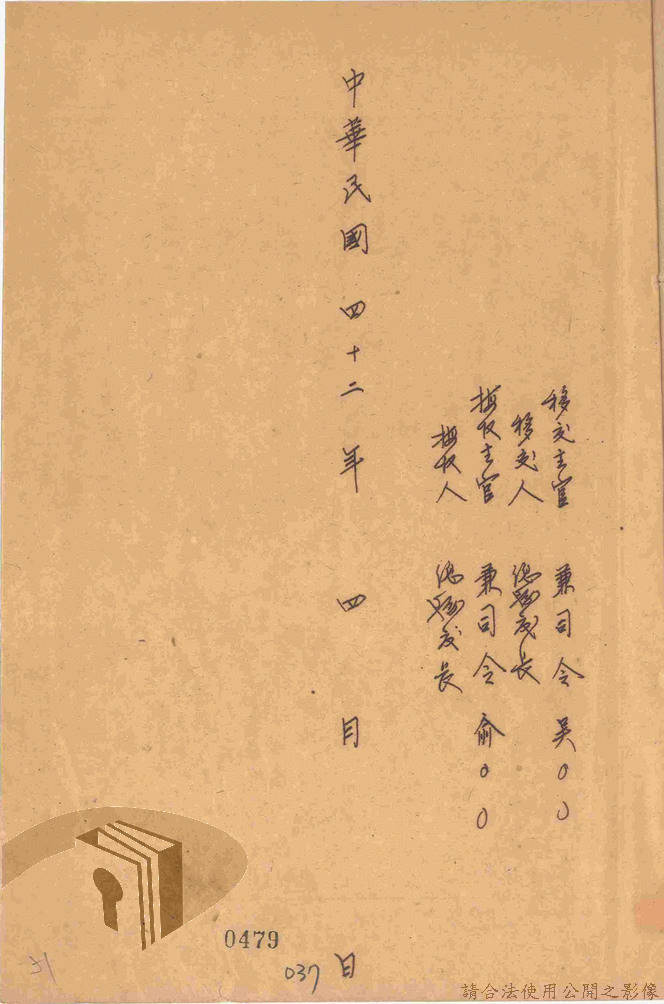 移交主官 兼司令 吳○○
移交人 總務處長
接收主官 兼司令 俞○○
接收人 總務處長
中華民國 四十二年 四月 日
0479
037
請合法使用公開之影像